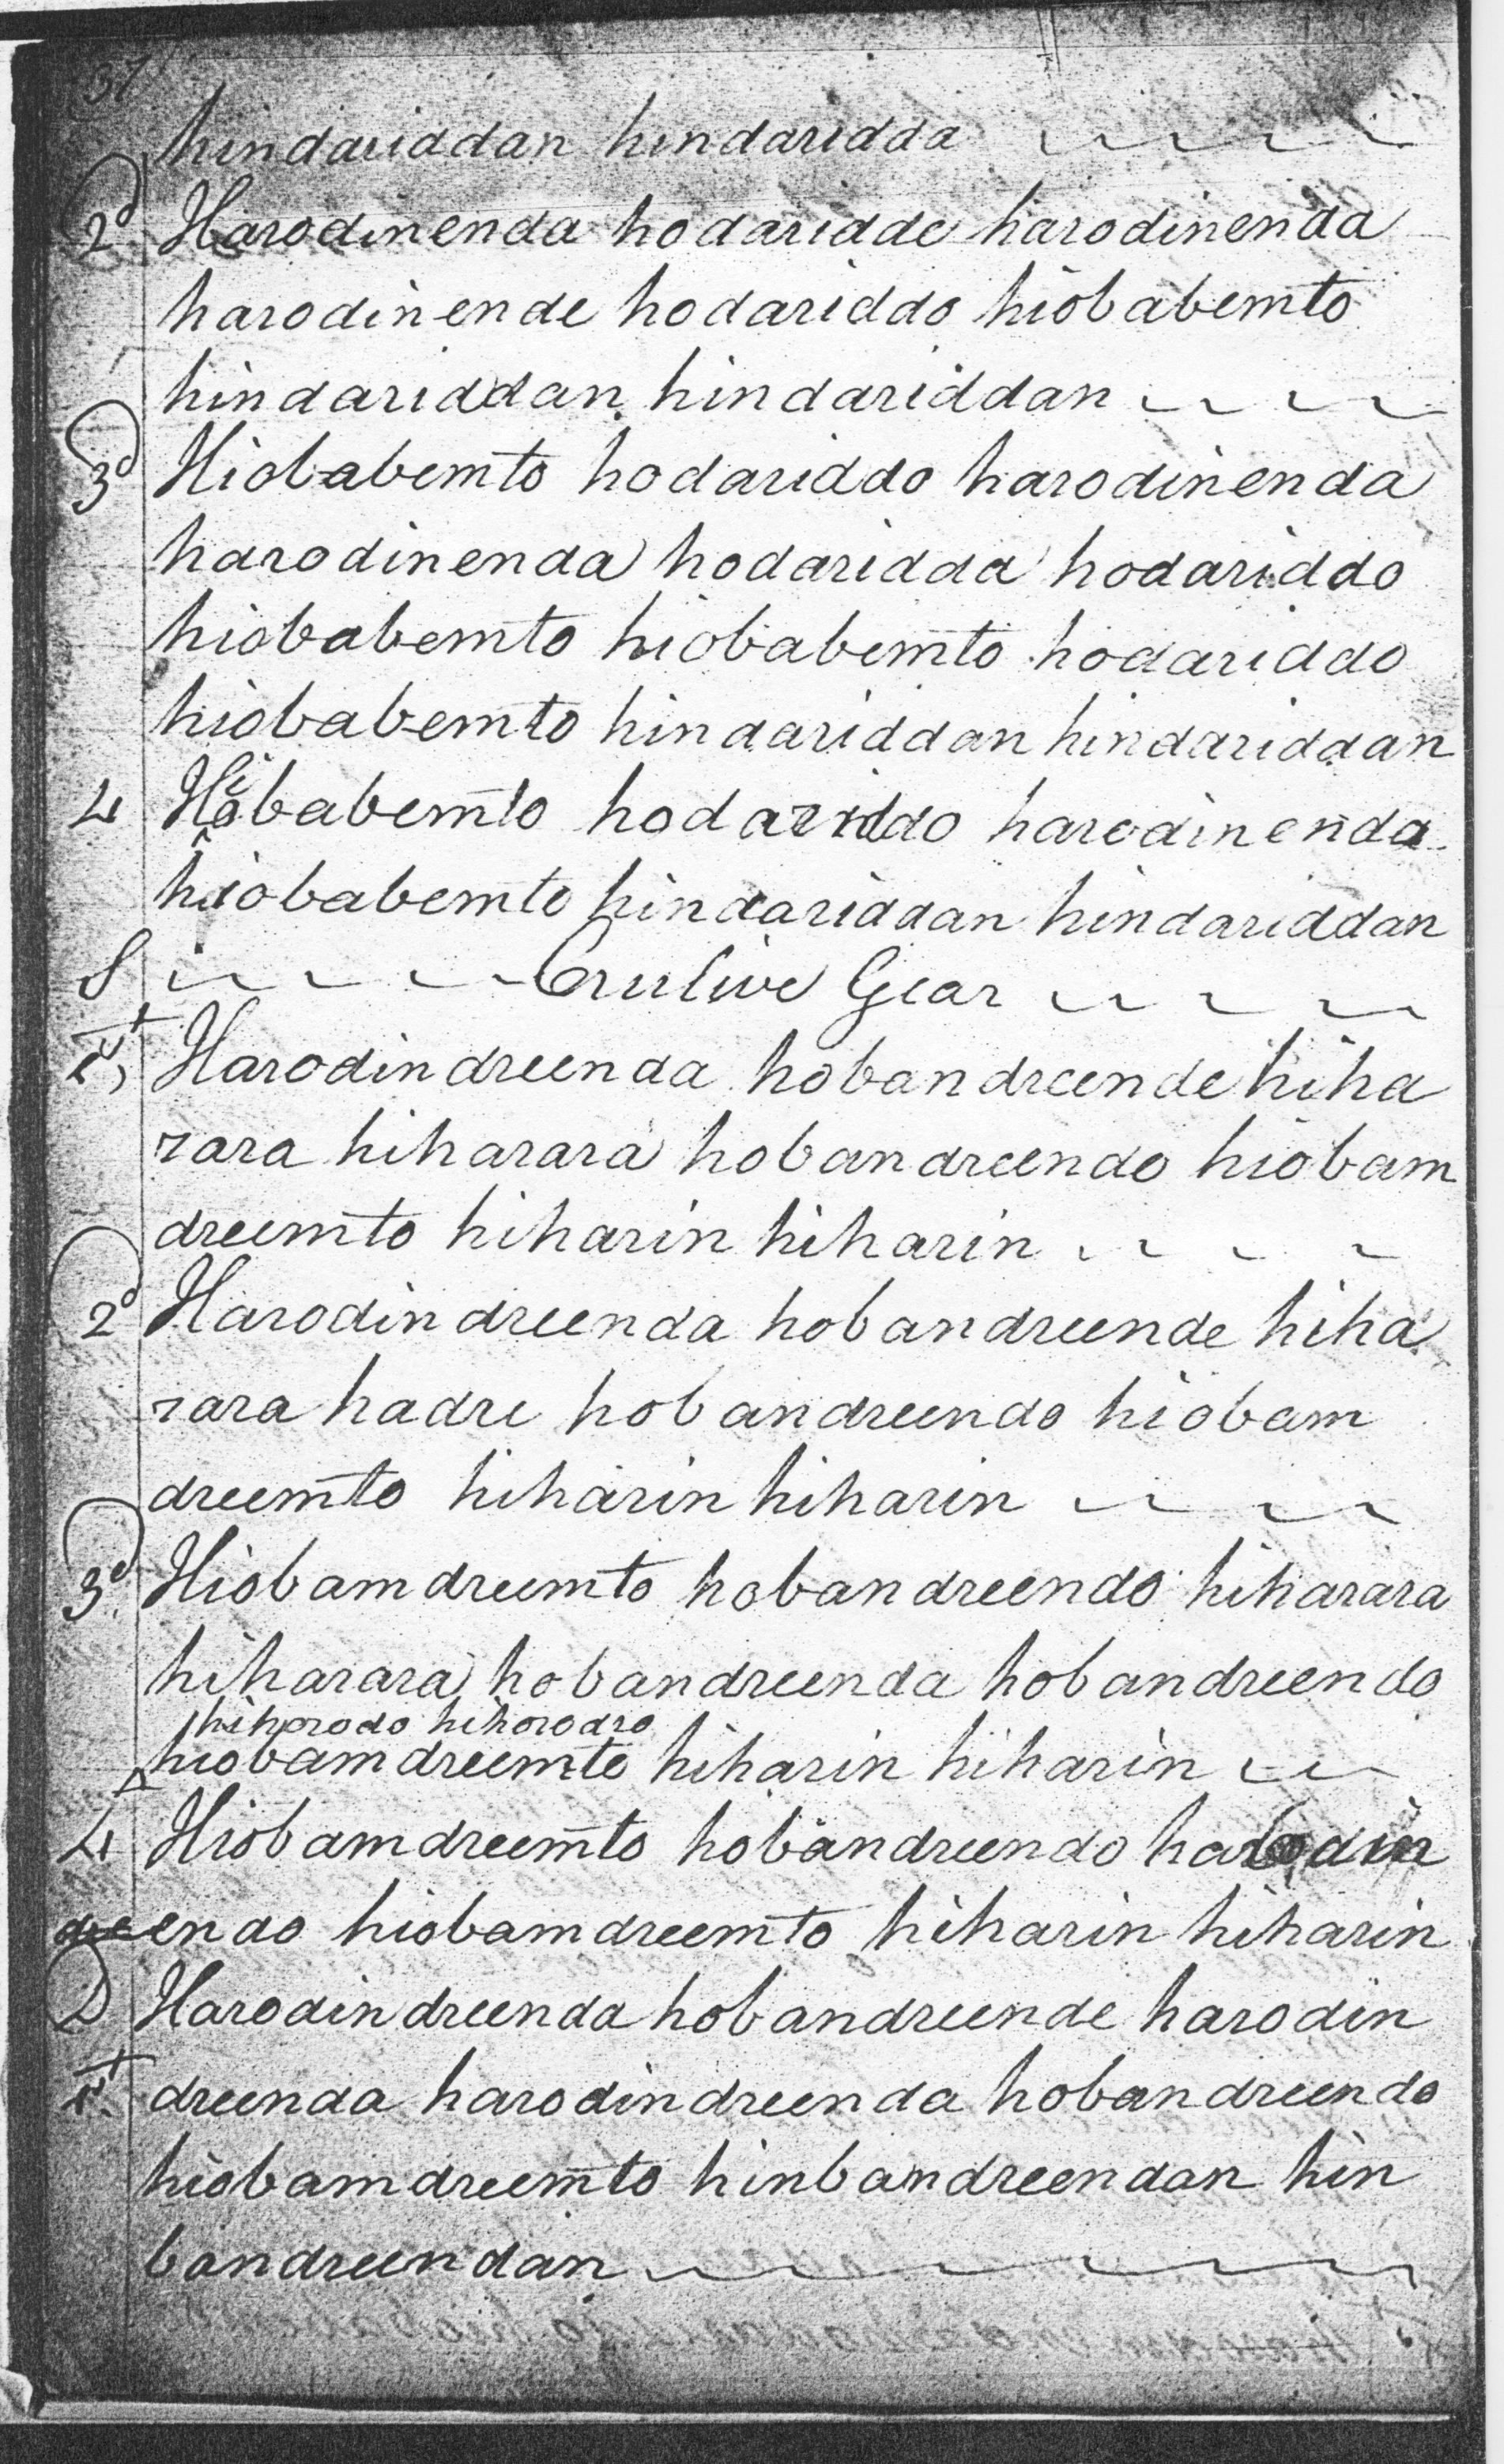 37
hindariddan hindaridda
2d Harodinenda hodaridde harodinenda
harodinende hodariddo hiobabemto
hindariddan hindariddan
3d Hiobabemto hodariddo harodinenda
harodinenda hodaridda hodariddo
hiobabemto hiobabemto hodariddo
hiobabemto hindariddan hindariddan
4 Hiobabemto hodariddo harodinenda
hiobabemto hindariddan hindariddan
S Crulive Gear
Harodindreenda hobandreende hiha
rara hiharara hobandreendo hiobam
dreemto hiharin hiharin
2d Harodindreenda hobandreende hiha
rara hadre hobandreendo hiobam
dreemto hiharin hiharin
3d Hiobamdreemto hobandreendo hiharara
hiharara hobandreenda hobandreendo
hihorodo hihorodro
hiobamdreemto hiharin hiharin
4 Hiobamdreemto hobandreendo harodin
dreendo hiobamdreemto hiharin hiharin
D Harodindreenda hobandreende harodin
dreenda harodindreenda hobandreendo
hiobamdreemto hinbandreendan hin
bandreendan